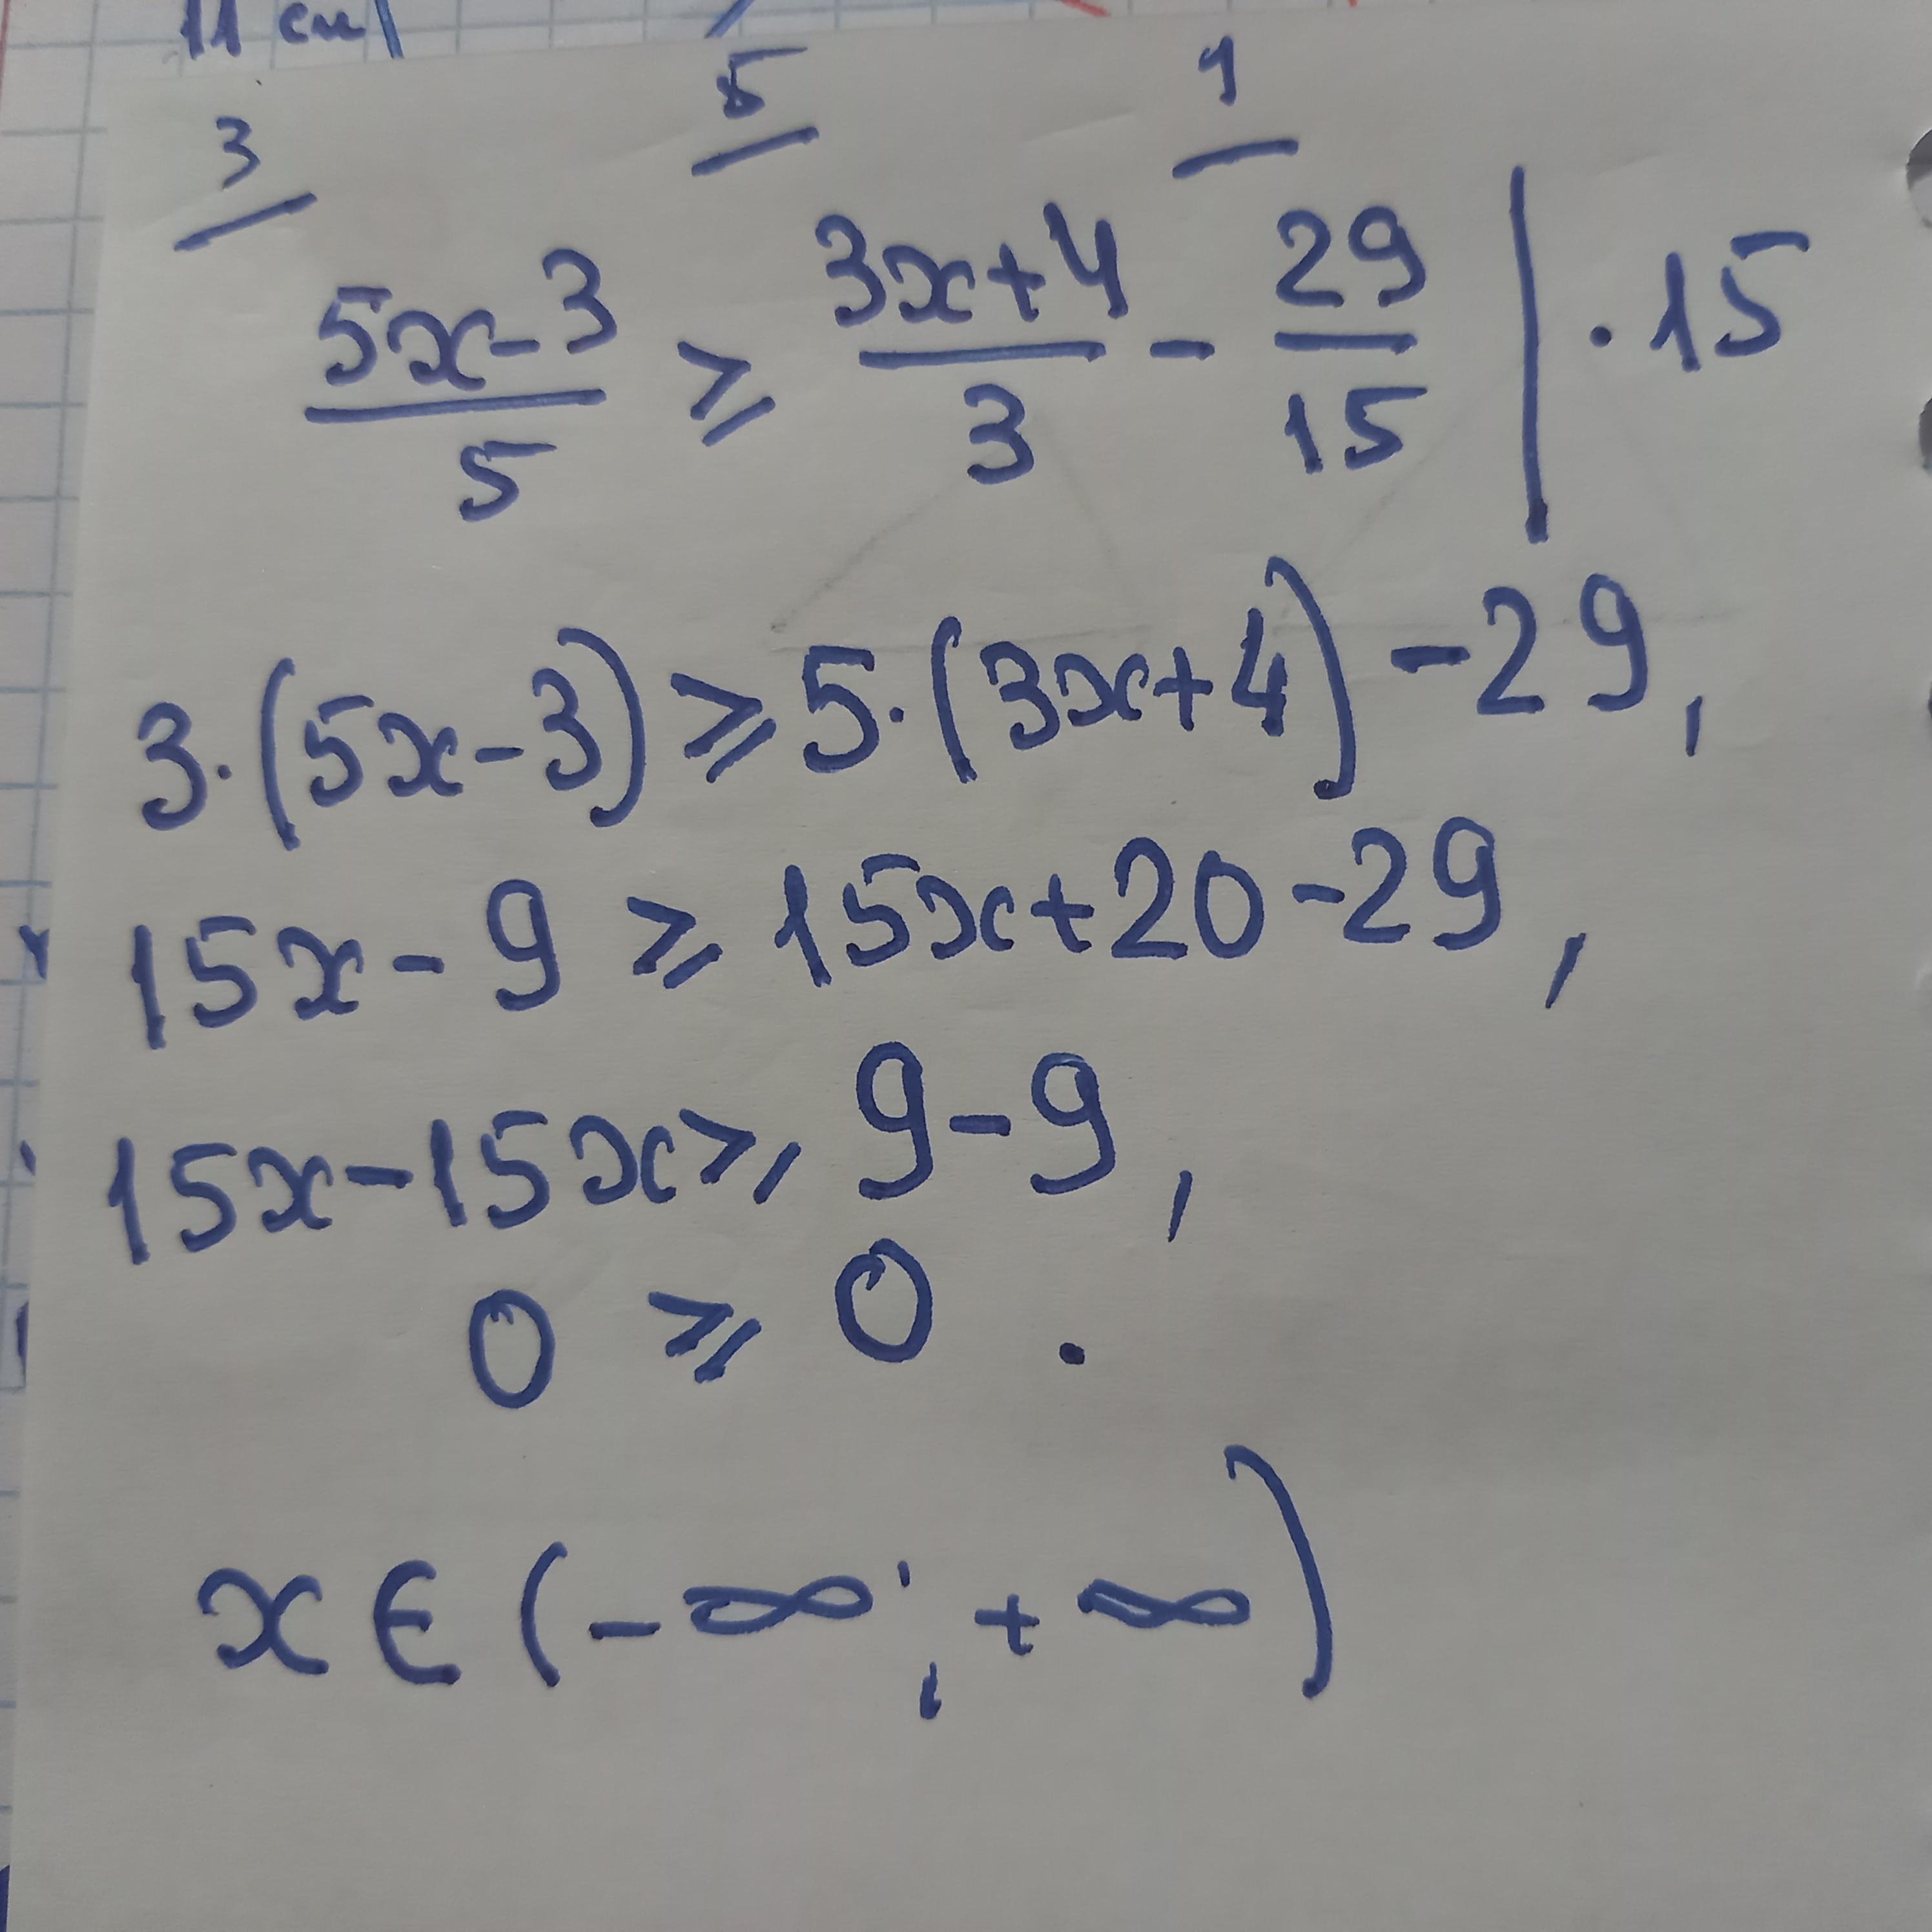 11 см
3 5 1
(5x-3)/5 ≥ (3x+4)/3 - 29/15 | · 15
3·(5x-3) ≥ 5·(3x+4) - 29,
15x - 9 ≥ 15x + 20 - 29,
15x - 15x ≥ 9 - 9,
0 ≥ 0 .
x ∈ (-∞; +∞)